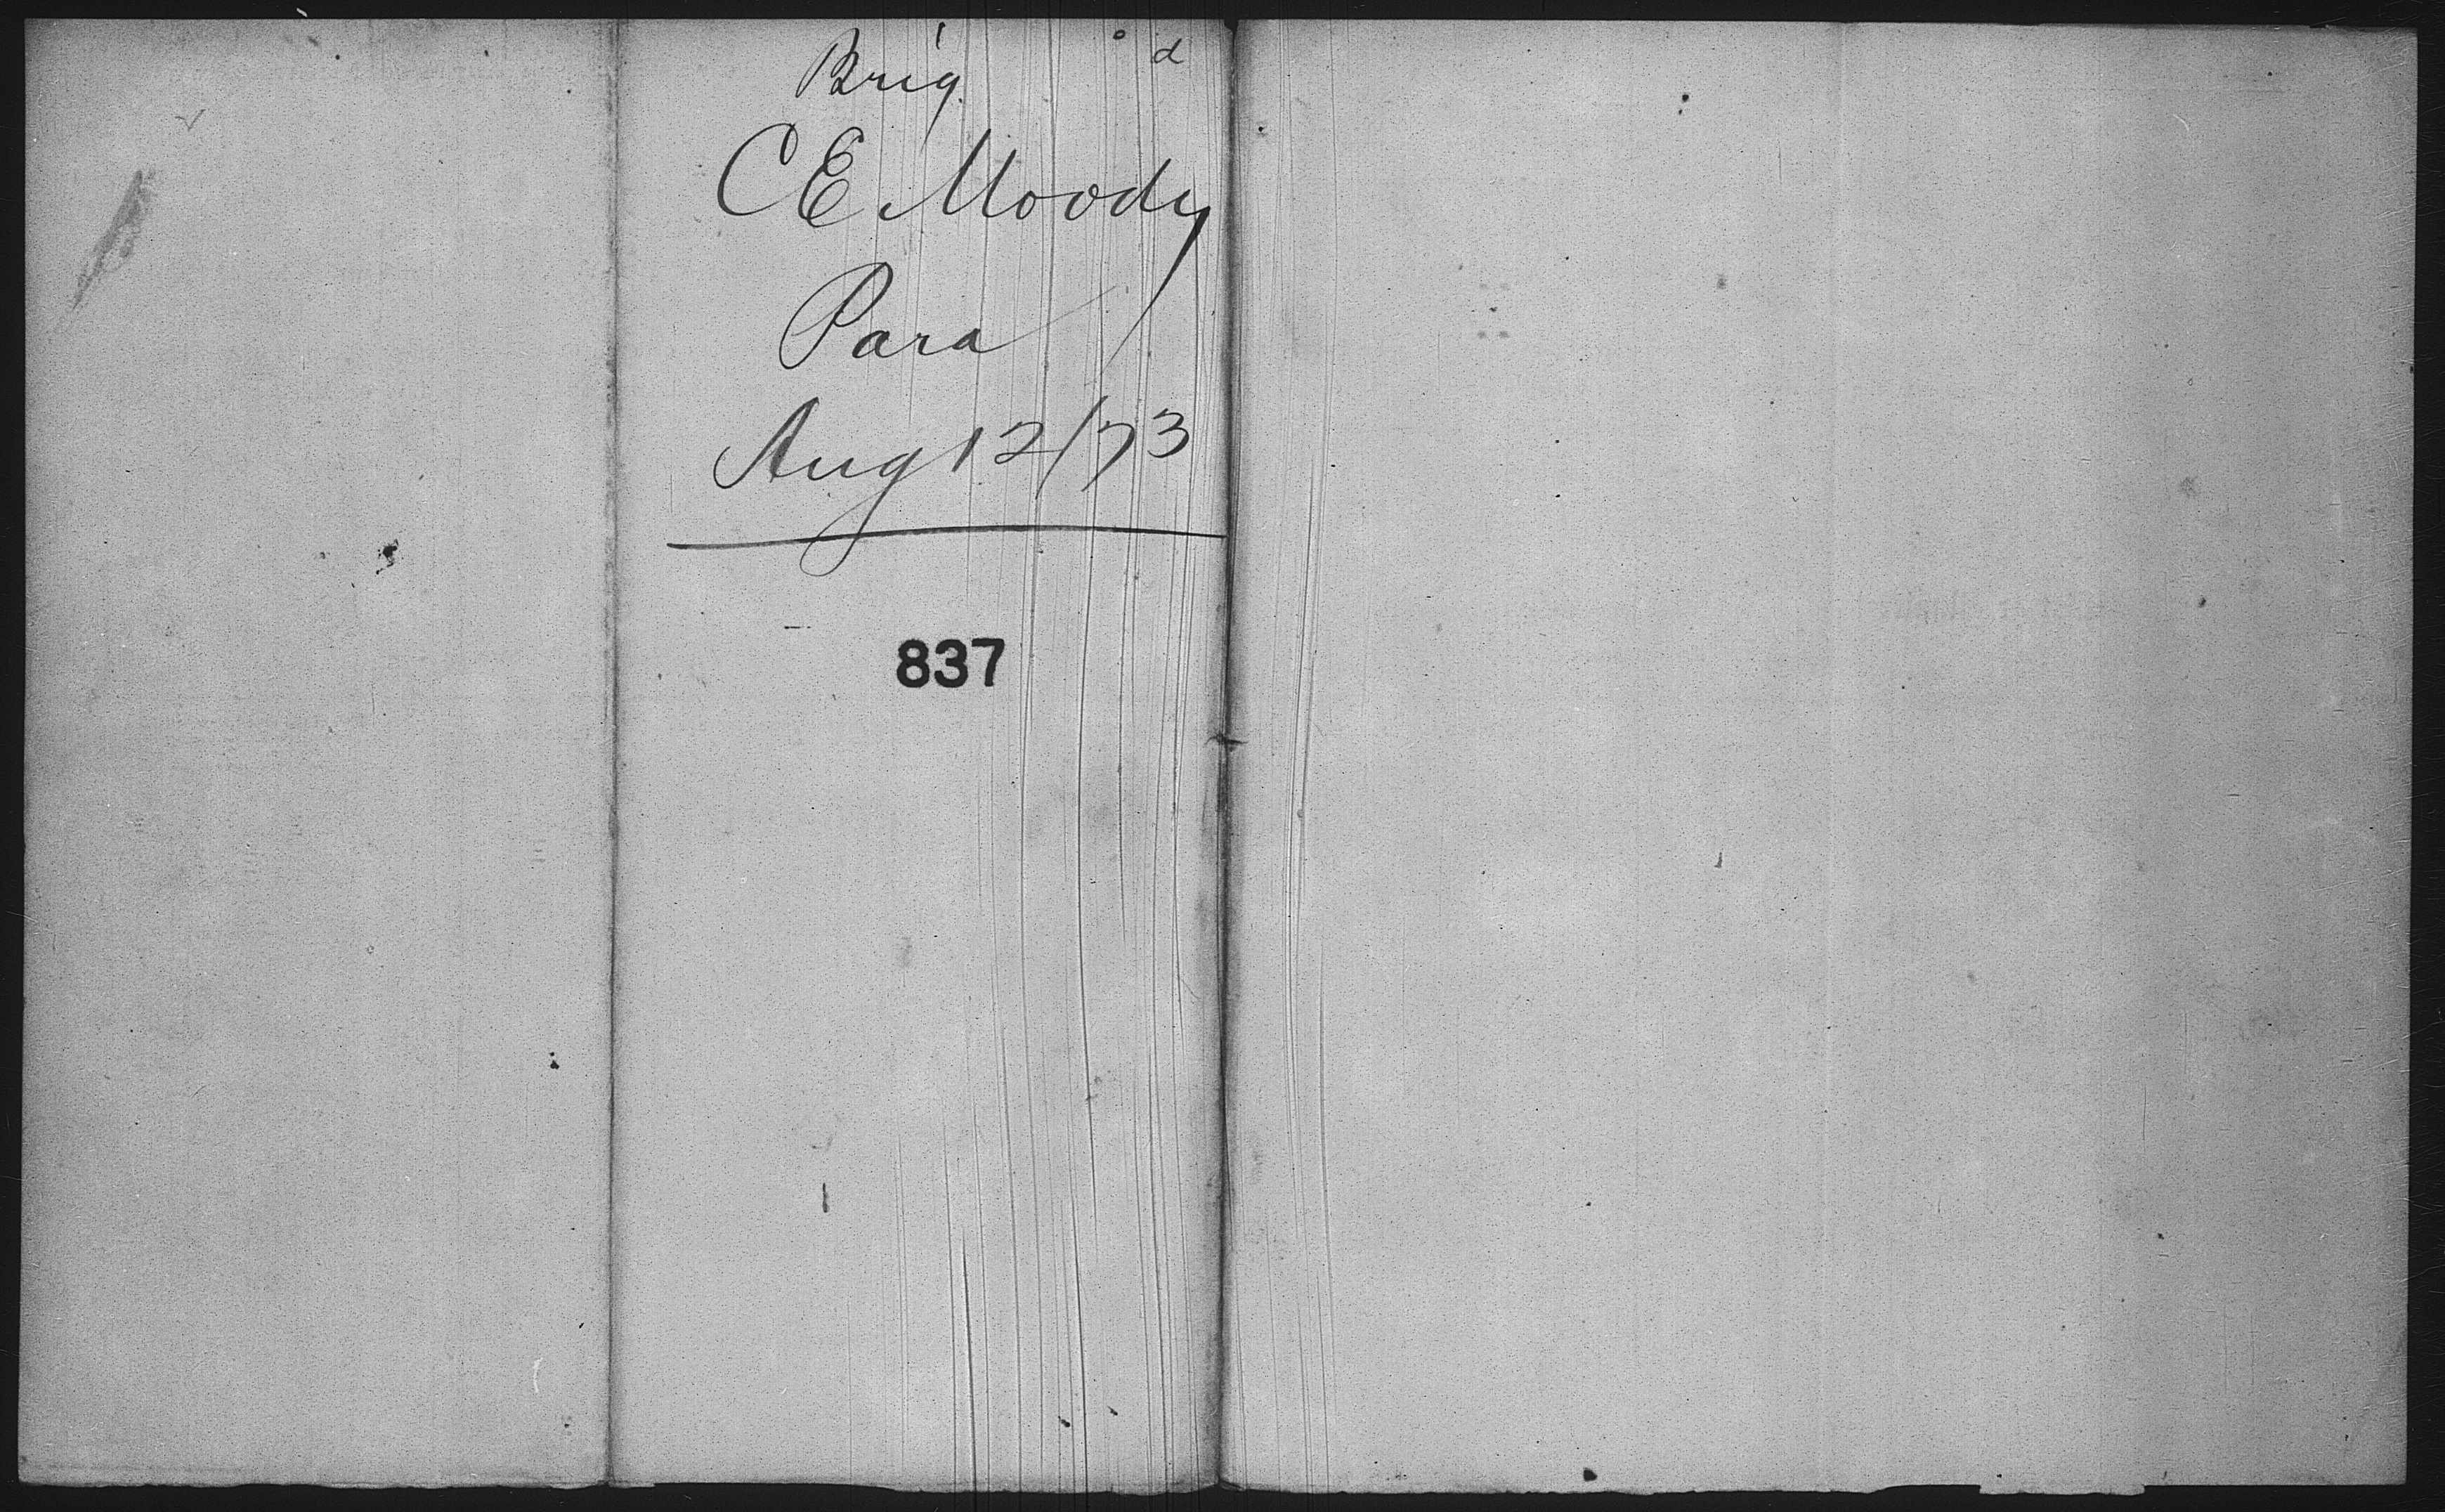 Brig d
C E Moody
Para
Aug 12/73
837